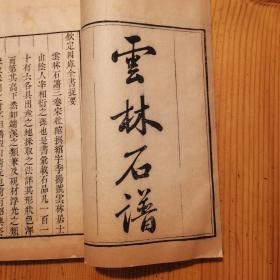 雲林石譜
欽定四庫全書提要
雲林石譜三卷宋杜綰撰綰字季揚號雲林居士
山陰人宰相衍之孫也是書彙載石品凡一百一
十有六各具出產之地採取之法詳其形狀色澤
而第其高下然如端溪之類兼及硯材浮光之類